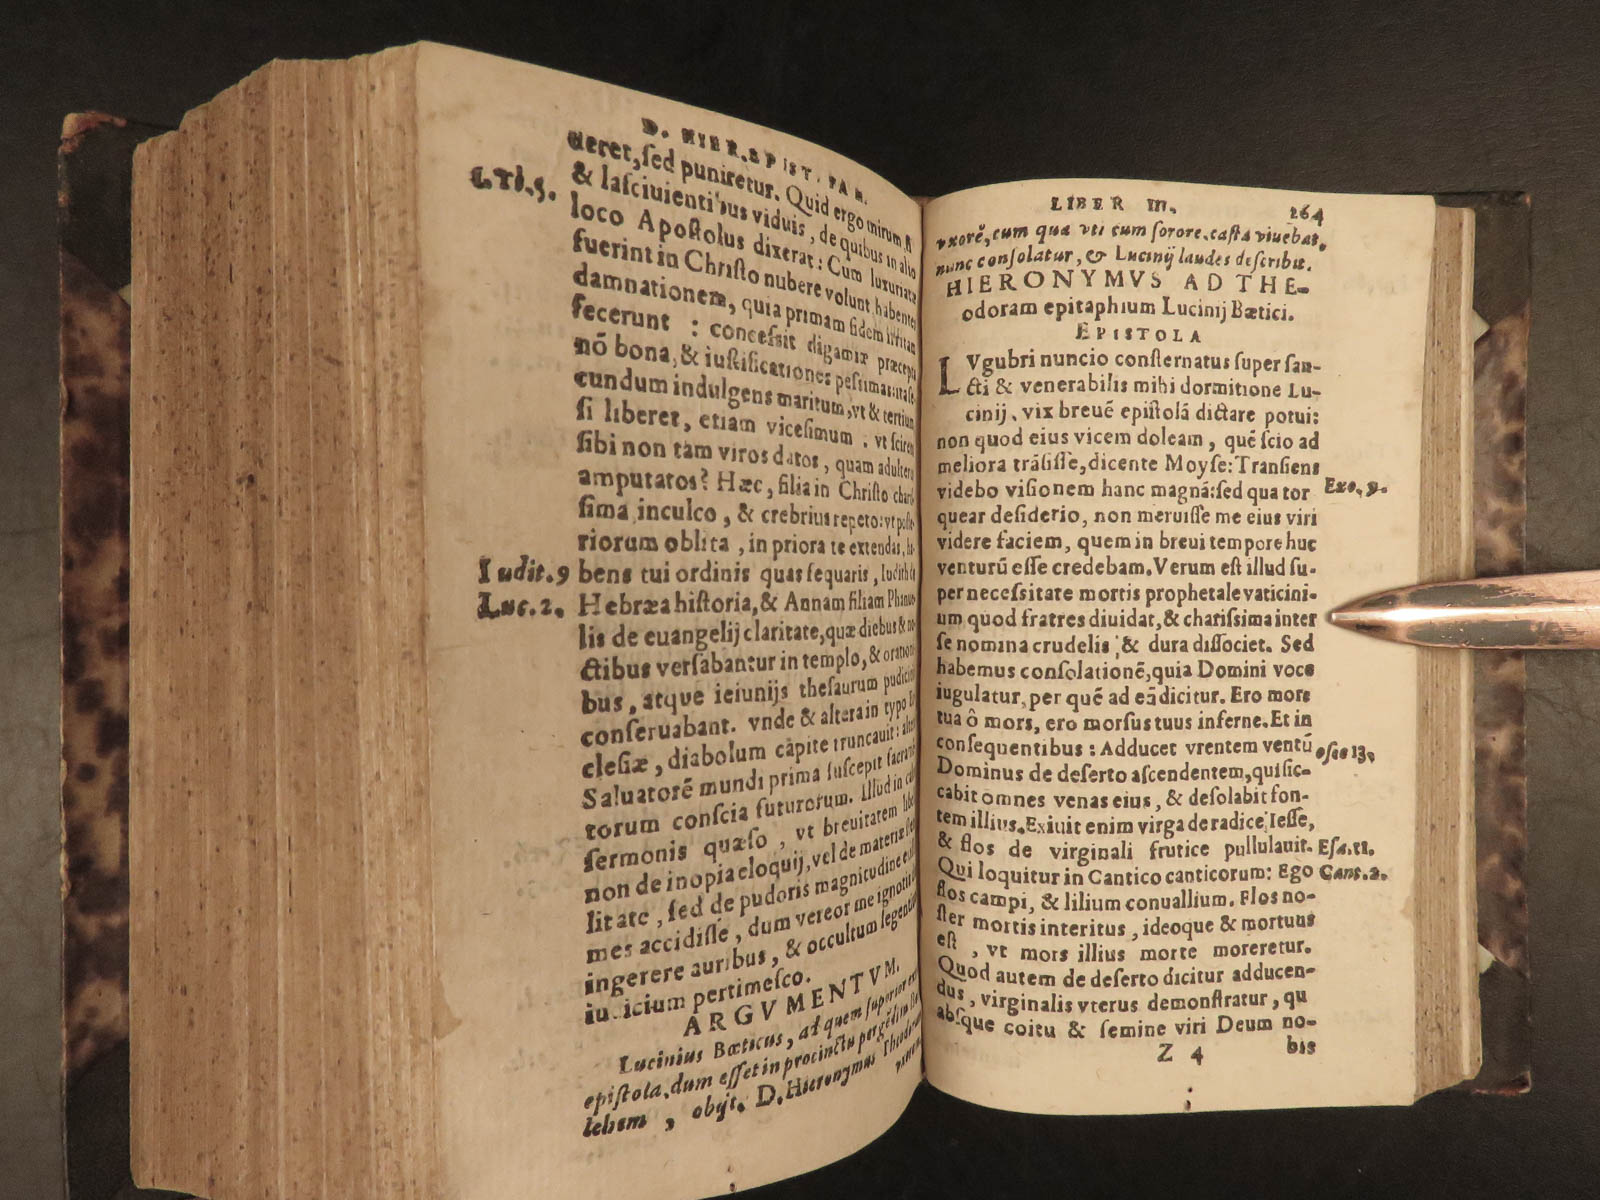 D. HIER. EPIST. FAM.
ueret, sed puniretur. Quid ergo mirum si
1. Ti. 5.
& lasciuientibus viduis, de quibus in alio
loco Apostolus dixerat: Cum luxuriatæ
fuerint in Christo nubere volunt habentes
damnationem, quia primam fidem irritam
fecerunt : concessit digamiæ præcepta
nō bona, & iustificationes pessimas: ita se-
cundum indulgens maritum, vt & tertium
si liberet, etiam vicesimum . vt scirent
sibi non tam viros datos, quam adulteros
amputatos? Hæc, filia in Christo charis-
sima inculco, & crebrius repeto: vt poste-
riorum oblita, in priora te extendas, ha-
Iudit. 9
bens tui ordinis quas sequaris, Iudith de
Luc. 2.
Hebræa historia, & Annam filiam Phanue-
lis de euangelij claritate, quæ diebus & no-
ctibus versabantur in templo, & orationi-
bus, atque ieiunijs thesaurum pudicitiæ
conseruabant. vnde & altera in typo Ec-
clesiæ, diabolum capite truncauit: altera
Saluatorē mundi prima suscepit sacramen-
torum conscia futurorum. Illud in calce
sermonis quæso, vt breuitatem libelli
non de inopia eloquij, vel de materiæ steri-
litate, sed de pudoris magnitudine existi-
mes accidisse, dum vereor me ignotis diu
ingerere auribus, & occultum legentium
iudicium pertimesco.
ARGVMENTVM.
Lucinius Bæticus, ad quem superior est
epistola, dum esset in procinctu pergēdi in Beth-
lehem , obijt. D. Hieronymus Theodoram
vxorem
LIBER III. 264
vxorē, cum qua vti cum sorore casta viuebat,
nunc consolatur, & Lucinij laudes describit.
HIERONYMVS AD THE-
odoram epitaphium Lucinij Bætici.
EPISTOLA
LVgubri nuncio consternatus super san-
cti & venerabilis mihi dormitione Lu-
cinij, vix breuē epistolā dictare potui:
non quod eius vicem doleam, quē scio ad
meliora trāsisse, dicente Moyse: Transiens
videbo visionem hanc magnā: sed qua tor
Exo. 9.
quear desiderio, non meruisse me eius viri
videre faciem, quem in breui tempore huc
venturū esse credebam. Verum est illud su-
per necessitate mortis prophetale vaticini-
um quod fratres diuidat, & charissima inter
se nomina crudelis, & dura dissociet. Sed
habemus consolationē, quia Domini voce
iugulatur, per quē ad eā dicitur. Ero mors
tua ô mors, ero morsus tuus inferne. Et in
consequentibus : Adducet vrentem ventū
Osee 13.
Dominus de deserto ascendentem, qui sic-
cabit omnes venas eius, & desolabit fon-
tem illius. Exiuit enim virga de radice Iesse,
& flos de virginali frutice pullulauit.
Esa. 11.
Qui loquitur in Cantico canticorum: Ego
Cant. 2.
flos campi, & lilium conuallium. Flos no-
ster mortis interitus, ideoque & mortuus
est , vt mors illius morte moreretur.
Quod autem de deserto dicitur adducen-
dus, virginalis vterus demonstratur, qu
absque coitu & semine viri Deum no-
Z 4 bis